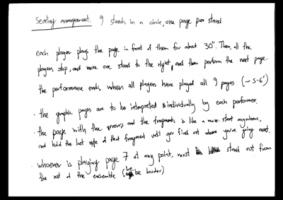 Seating management: 9 stands in a circle, one page per stand
each player plays the page in front of them for about 30". Then, all the
players stop, and move one stand to the right, and then perform the next page.
the performance ends when all players have played all 9 pages (~5-6')
- the graphic pages are to be interpreted individually by each performer.
- the page with the and the fragments is like a more start anywhere,
and hold the last note of that fragment until you find out where you're going next.
- whoever is playing page 7 at any point, must stand out from
the rest of the ensemble (be louder)